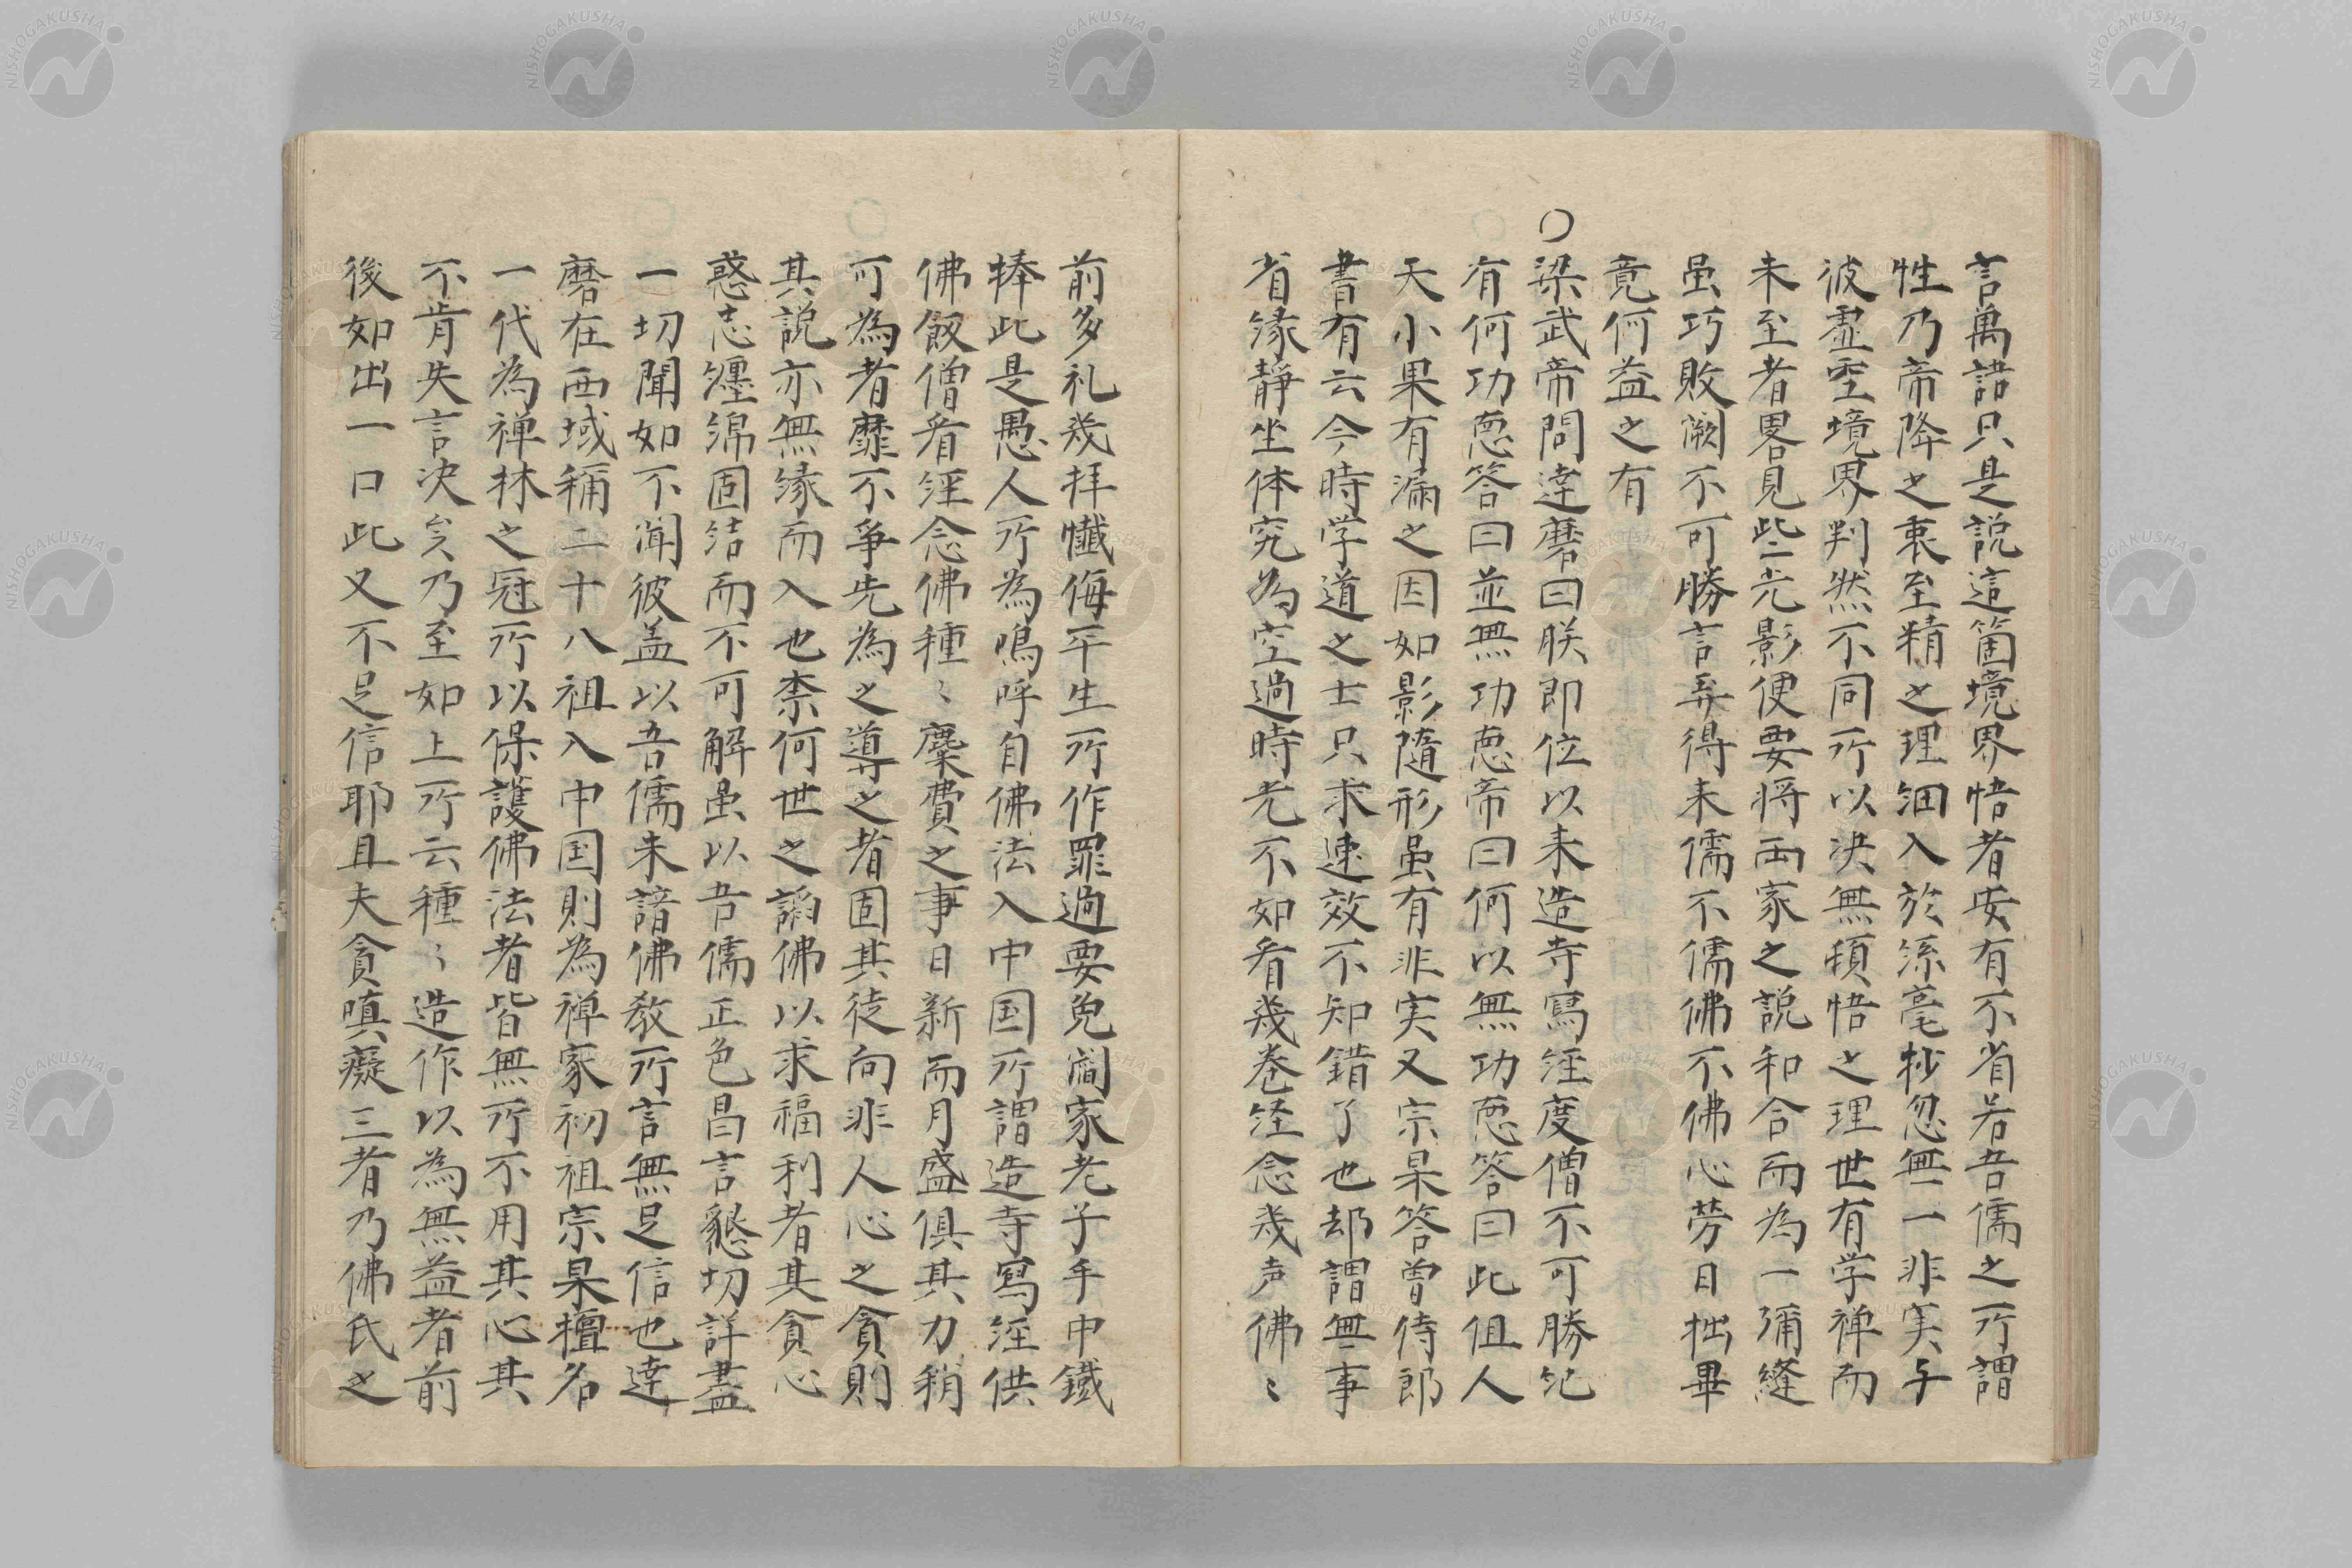 言萬語只是説這箇境界悟者安有不省若吾儒之所謂
性乃帝降之衷至精之理細入於絲毫杪忽無一非実与
彼虚空境界判然不同所以決無頓悟之理世有学禅而
未至者畧見些光影便要将両家之説和合而為一彌縫
虽巧敗闕不可勝言弄得来儒不儒佛不佛心労日拙畢
竟何益之有
〇梁武帝問達磨曰朕即位以来造寺寫経度僧不可勝紀
有何功悳答曰並無功悳帝曰何以無功悳答曰此但人
天小果有漏之因如影隨形虽有非実又宗杲答曽侍郎
書有云今時学道之士只求速效不知錯了也却謂無事
省縁静坐体究為空過時光不如看幾巻経念幾声佛〻
前多礼幾拝懺悔平生所作罪過要免閻家老子手中鐵
棒此是愚人所為嗚呼自佛法入中国所謂造寺寫経供
佛飯僧看経念佛種〻糜費之事日新而月盛俱其力稍
可為者靡不爭先為之導之者固其徒向非人心之貪則
其説亦無縁而入也柰何世之謟佛以求福利者其貪心
惑志纏綿固結而不可解虽以吾儒正色昌言懇切詳盡
一切聞如不聞彼盖以吾儒未諳佛教所言無足信也達
磨在西域稱二十八祖入中国則為禅家初祖宗杲擅名
一代為禅林之冠所以保護佛法者皆無所不用其心其
不肯失言決矣乃至如上所云種〻造作以為無益者前
後如出一口此又不足信耶且夫貪嗔癡三者乃佛氏之
NISHOGAKUSHA